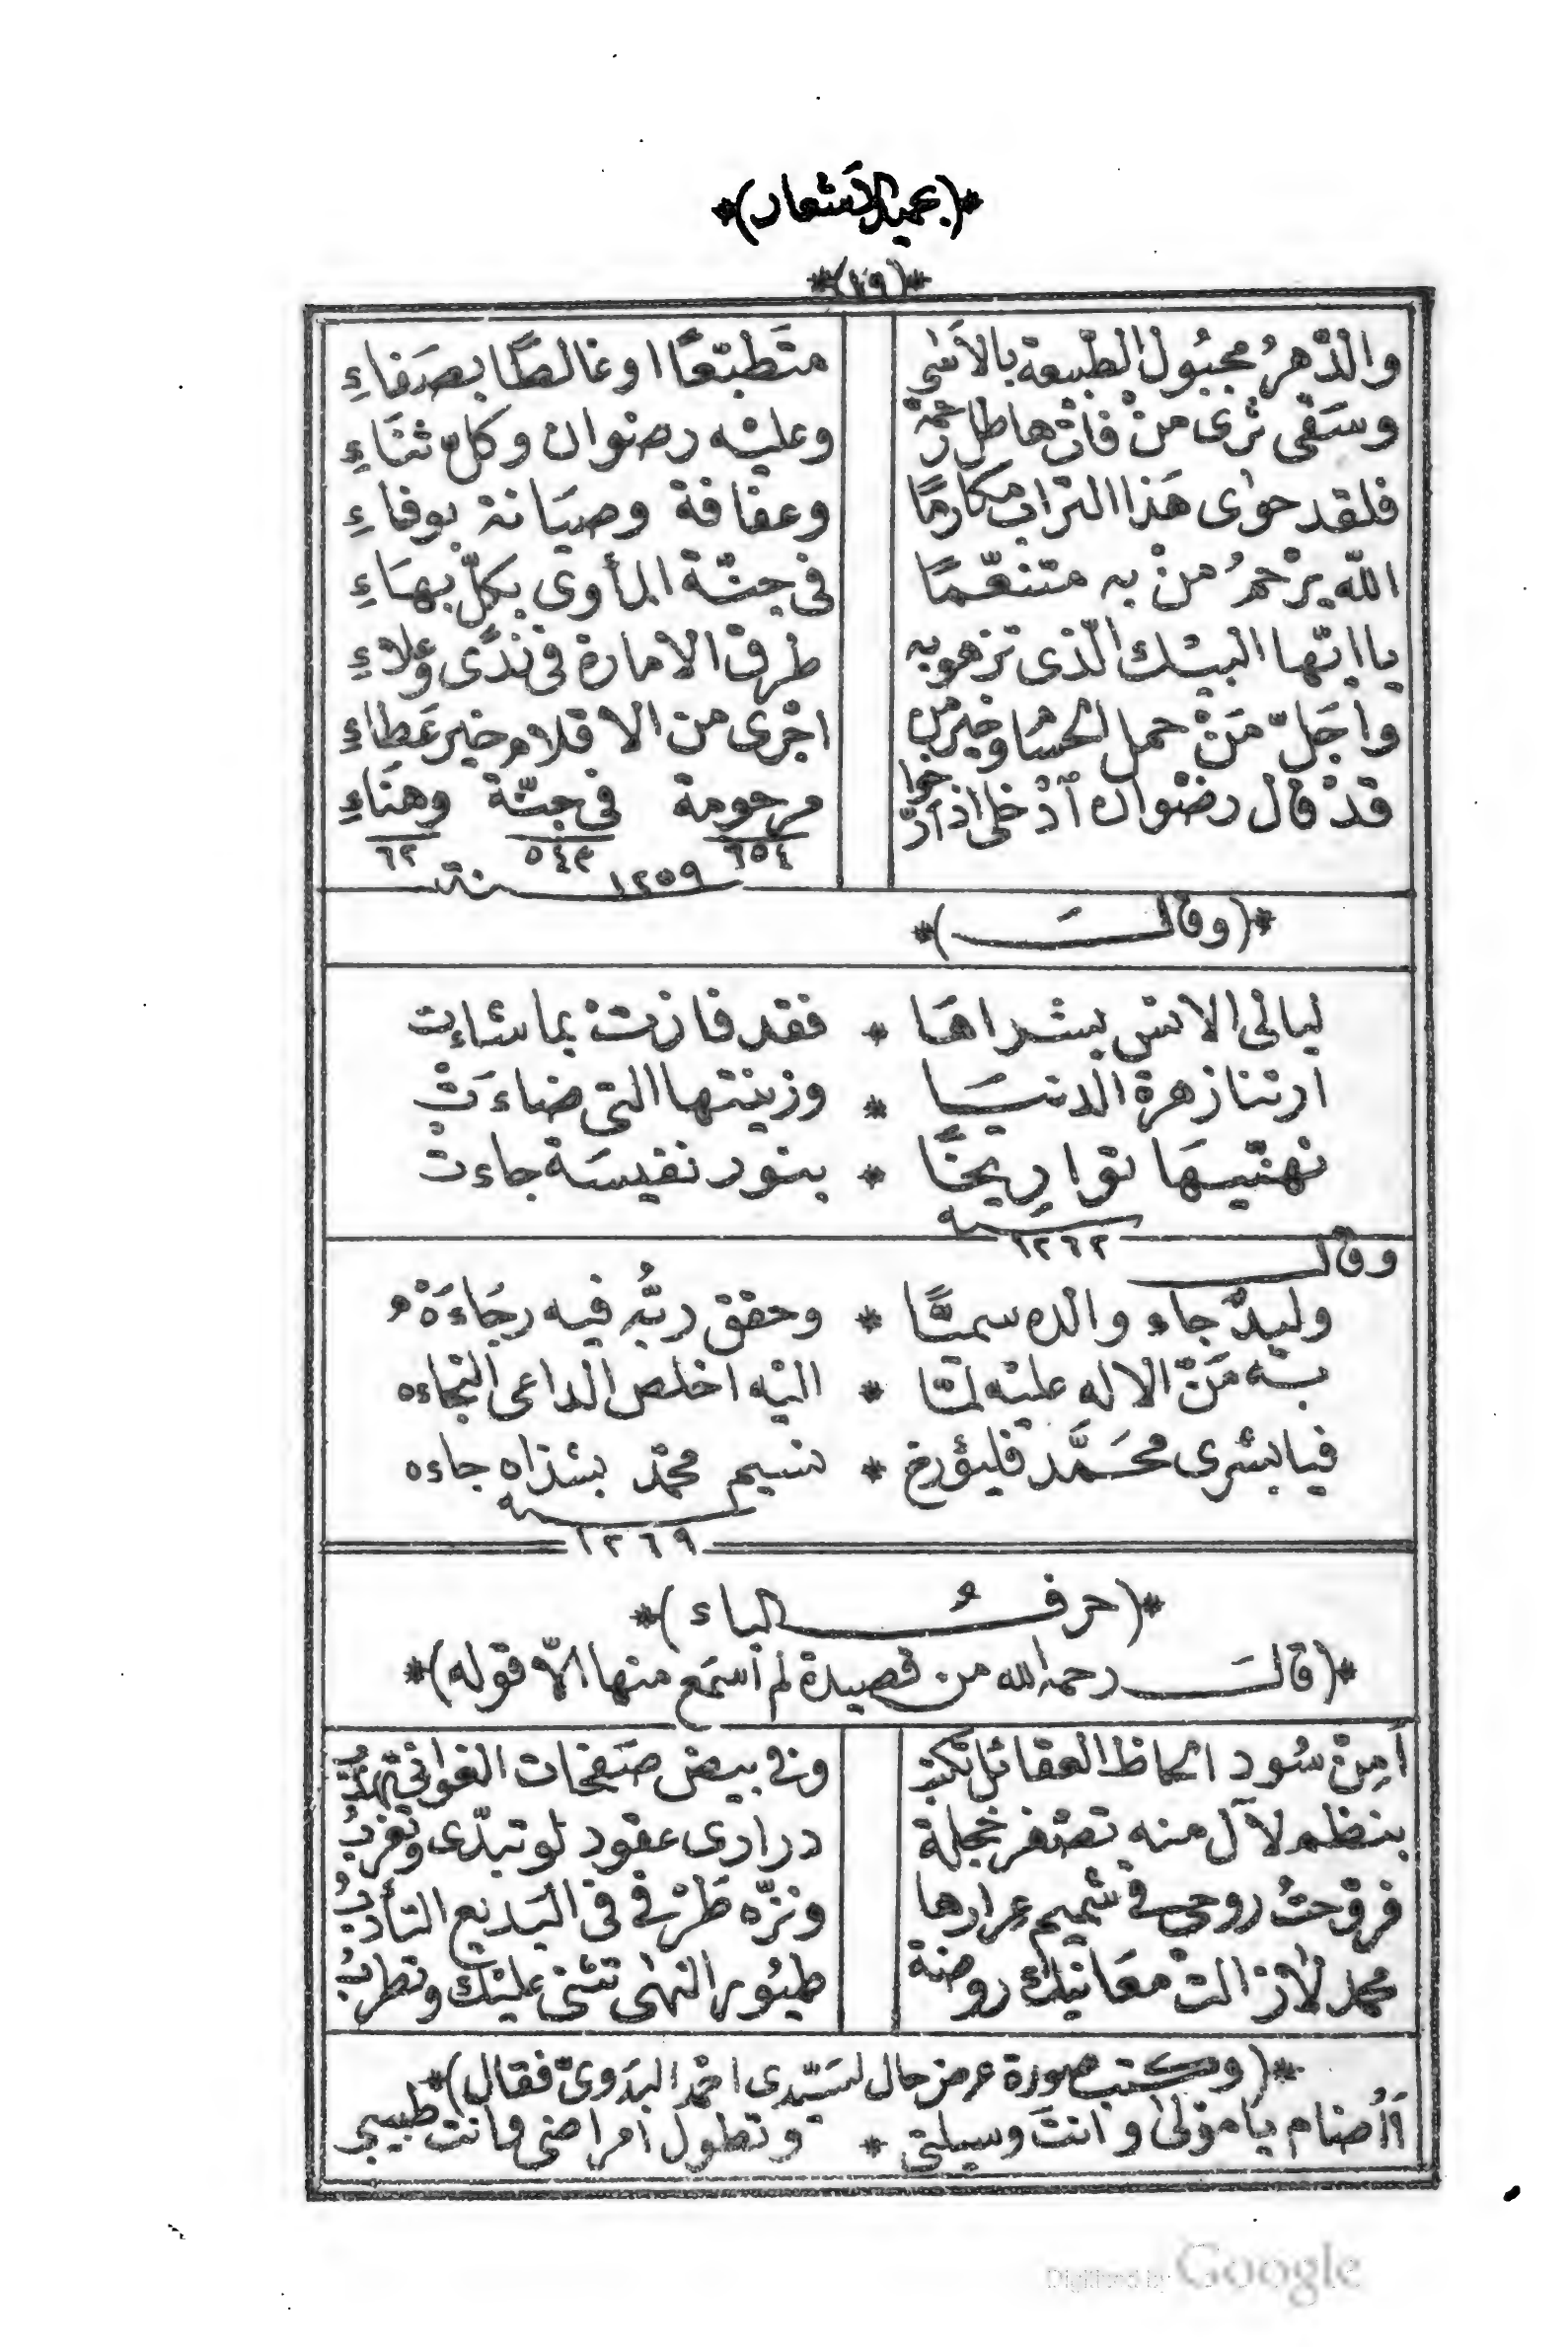 *(بحميد الاشعار)*
*(١٩)*
والدّهرُ مجبُول الطّبيعة بالاَسٰى متَطبّعًا او غالطًا بصَفاءِ
وسَقٰى ثرٰى منْ فازْ هاطل رحْمة وعليْه رضوان وكلّ ثنَاءِ
فلقد حوٰى هَذا التراب مكارمًا وعفافة وصيَانة بوفاءِ
اللّه يرْحمُ منْ به متنعّمًا فى جنّة المأوى بكلّ بهَاءِ
يا ايّها البيْك الّذى تزهو به طرق الامارة فى ندًى وعُلاءِ
واجَلّ مَنْ حمل الحسَام وخير من اجْرى من الاقلام خير عَطاءِ
قدْ قال رضْوان اُدْخلى اذ ارّخوا مرحومة فى جنّة وهنَاءِ
٦٥٤ ٥٤٣ ٦٢
سنة ١٢٥٩
*(وقالَ)*
ليالى الانْس بشراهَا * فقد فازتْ بما شاءت
ارتنا زهرة الدنيَا * وزينتها التى ضاءَتْ
نهنّيهَا تواريخًا * بنور نفيسَة جاءت
سنه ١٢٦٢
وقال
وليدٌ جاء والده سميًّا * وحقق ربُّه فيه رجَاءَهْ
بهٖ مَنّ الاله عليْه لمّا * اليْه اخلص الداعى التجاءه
فيا بشرى محَمَّد فليؤرخ * نسيم محمّد بشذاه جاءه
سنه ١٢٦٩
*(حرفُ الباء)*
*(قالَ رحمه الله من قصيدة لم اسمَع منها الّا قوله)*
اَمِنْ سُود الحاظ العقائل تكتبُ وفى بيض صَفحات الغوانى تهذّبُ
بنظم لآل منه تصْفر خجلة درارى عقود لو تبدّى وتغربُ
فروّحتُ روحى فى شميم عرارها ونزّه طرْفى فى البَديع التأدبُ
محمد لازالتْ معَانيك روضة طيُور النهٰى تثنى عليْك وتطربُ
*(وكتب صورة عرض حال لسَيّدى احْمد البدَوىّ فقال)*
أاُضام يا موْلى وانتَ وسيلتى * وتطول امراضى وانت طبيبى
Digitized by Google